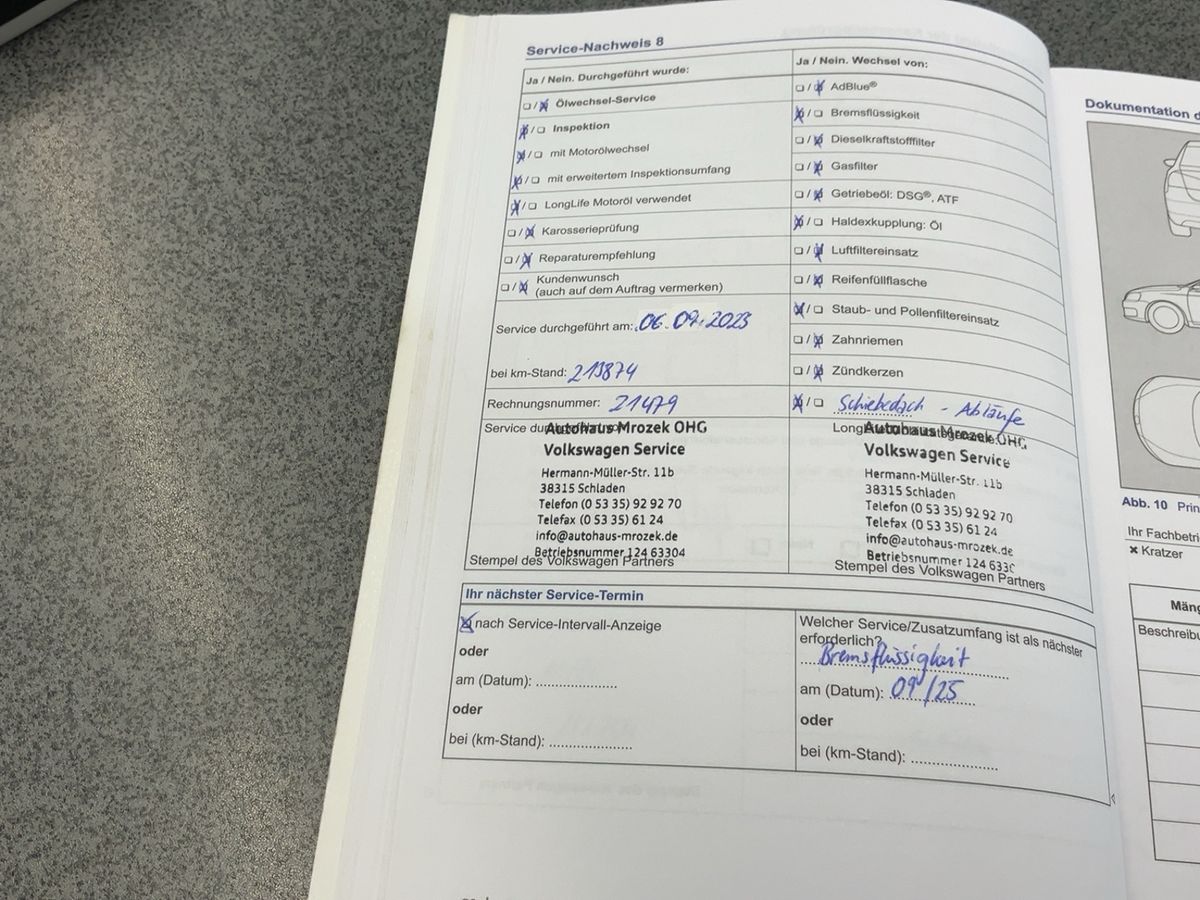 Service-Nachweis 8
Ja / Nein. Durchgeführt wurde:
Ölwechsel-Service
Inspektion
mit Motorölwechsel
mit erweitertem Inspektionsumfang
LongLife Motoröl verwendet
Karosserieprüfung
Reparaturempfehlung
Kundenwunsch
(auch auf dem Auftrag vermerken)
Service durchgeführt am: 06.09.2023
bei km-Stand: 219874
Rechnungsnummer: 21479
Ja / Nein. Wechsel von:
AdBlue®
Bremsflüssigkeit
Dieselkraftstofffilter
Gasfilter
Getriebeöl: DSG®, ATF
Haldexkupplung: Öl
Luftfiltereinsatz
Reifenfüllflasche
Staub- und Pollenfiltereinsatz
Zahnriemen
Zündkerzen
Schiebedach - Abläufe
Service
Autohaus Mrozek OHG
Volkswagen Service
Hermann-Müller-Str. 11b
38315 Schladen
Telefon (0 53 35) 92 92 70
Telefax (0 53 35) 61 24
info@autohaus-mrozek.de
Betriebsnummer 124 63304
Stempel des Volkswagen Partners
Autohaus Mrozek OHG
Volkswagen Service
Hermann-Müller-Str. 11b
38315 Schladen
Telefon (0 53 35) 92 92 70
Telefax (0 53 35) 61 24
info@autohaus-mrozek.de
Betriebsnummer 124 6330
Stempel des Volkswagen Partners
Ihr nächster Service-Termin
nach Service-Intervall-Anzeige
oder
am (Datum):
oder
bei (km-Stand):
Welcher Service/Zusatzumfang ist als nächster
erforderlich?
Bremsflüssigkeit
am (Datum): 09/25
oder
bei (km-Stand):
Dokumentation d
Abb. 10 Prin
Ihr Fachbetri
× Kratzer
Mäng
Beschreibu